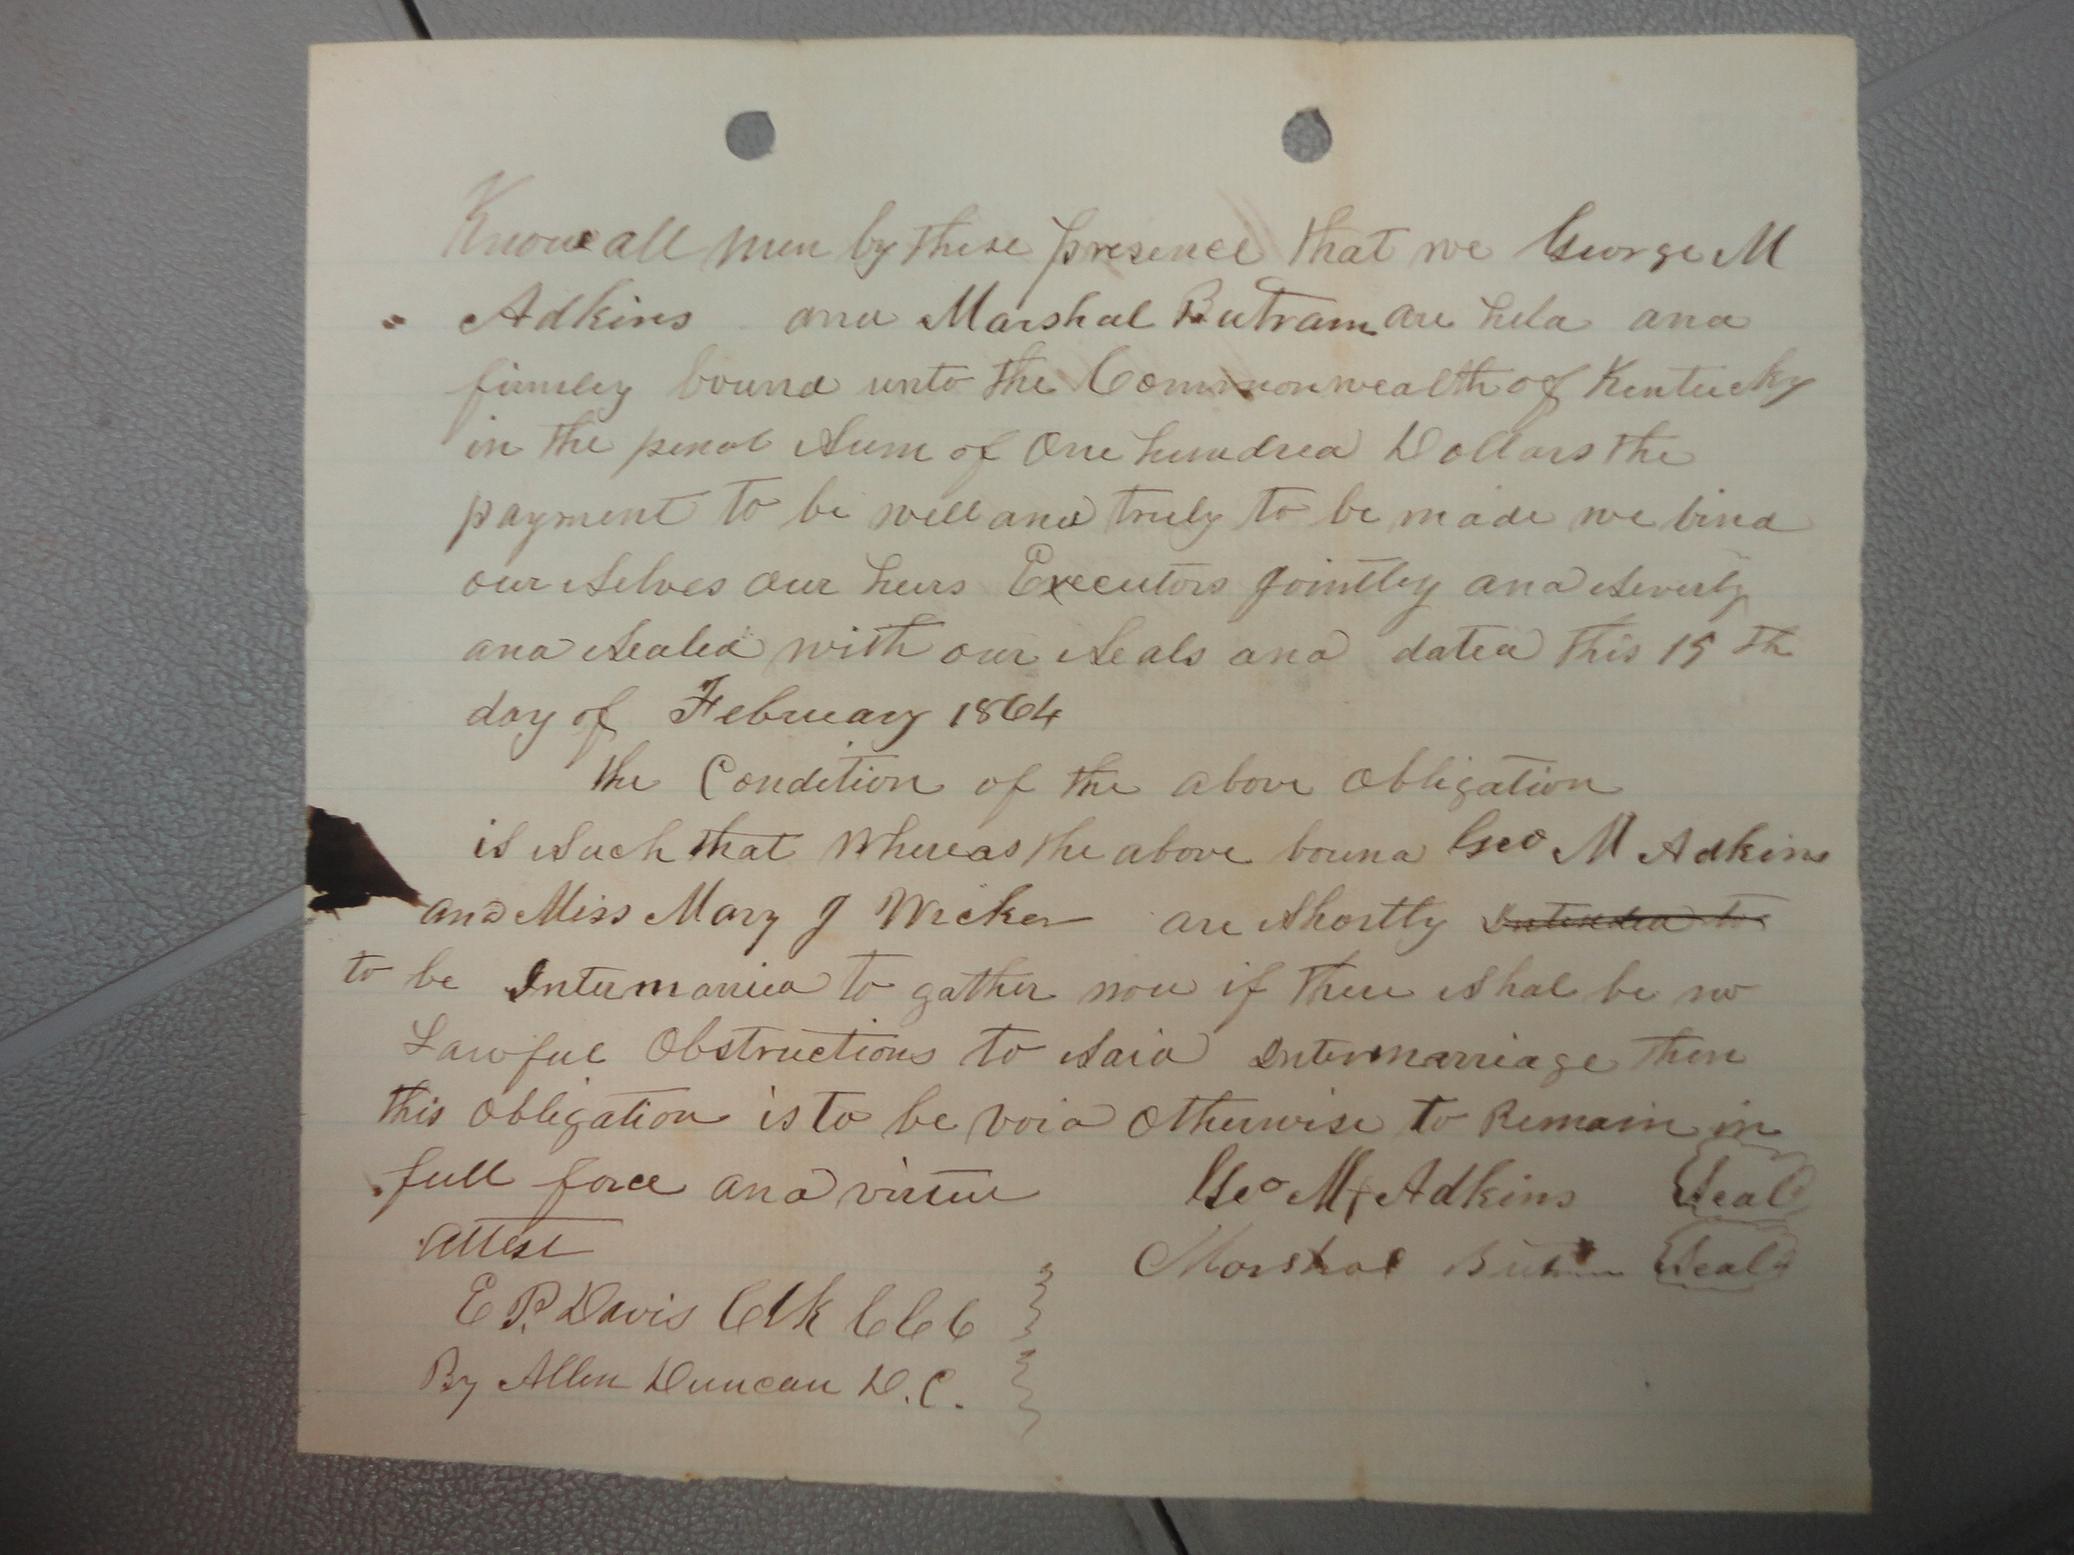 Know all men by these presence that we George M
Adkins and Marshal Butram are held and
firmley bound unto the Commonwealth of Kentucky
in the penal Sum of One hundred Dollars the
payment to be well and truly to be made we bind
our selves our heirs Executors Jointley and Severly
and Sealed with our Seals and dated this 15th
day of February 1864
the Condition of the above obligation
is Such that Whereas the above bound Geo M Adkins
and Miss Mary J Wicker are Shortly Intended to
to be Intermarried to gather now if there shal be no
Lawful Obstructions to Said Intermarriage then
this obligation is to be void Otherwise to Remain in
full force and virtue Geo M Adkins Seal
Attest
Marshal Butram Seal
E P. Davis Clk C C C
By Allen Duncan D.C.